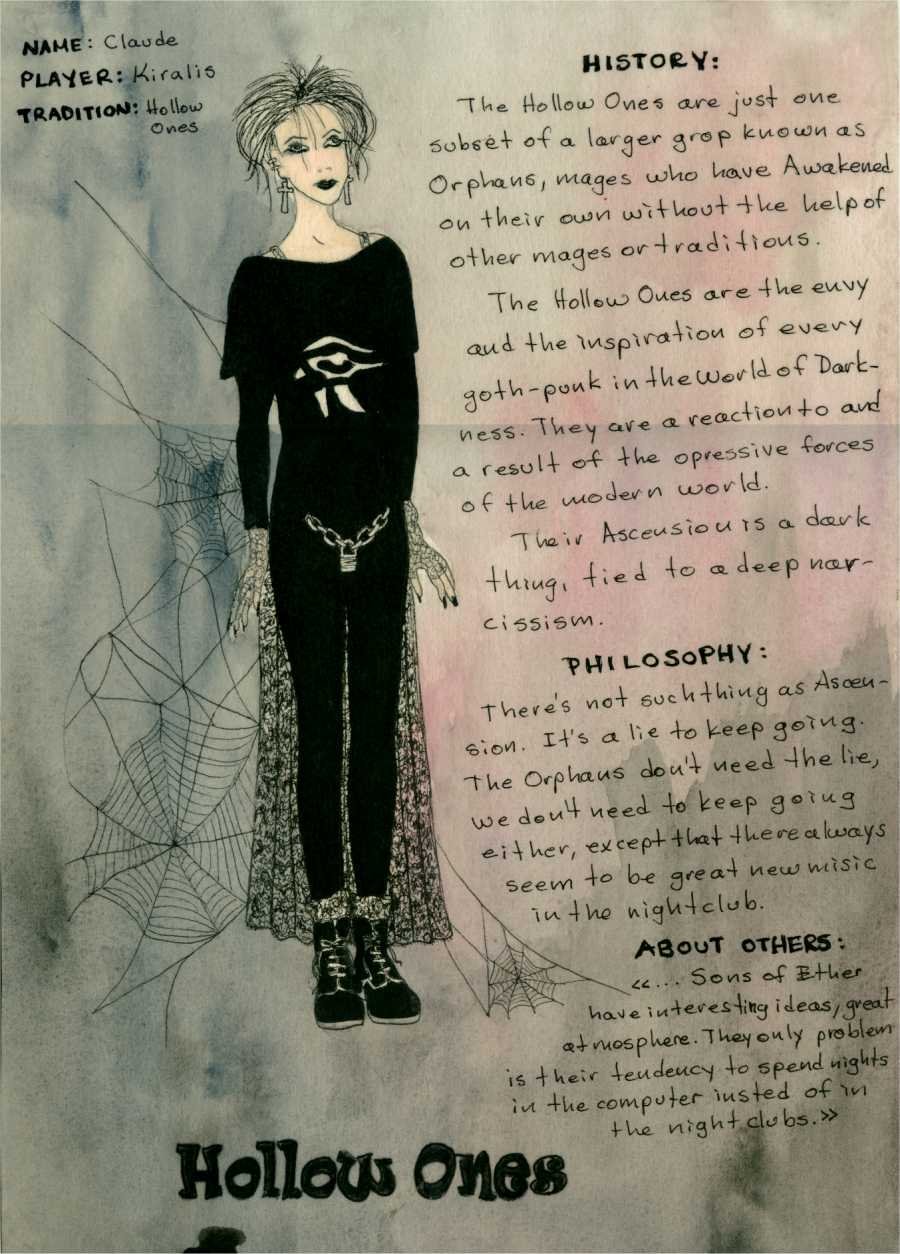 NAME: Claude
PLAYER: Kiralis
TRADITION: Hollow
Ones
HISTORY:
The Hollow Ones are just one
subset of a larger grop known as
Orphans, mages who have Awakened
on their own without the help of
other mages or traditions.
The Hollow Ones are the envy
and the inspiration of every
goth-punk in the World of Dark-
ness. They are a reaction to and
a result of the opressive forces
of the modern world.
Their Ascension is a dark
thing, tied to a deep nar-
cissism.
PHILOSOPHY:
There's not such thing as Ascen-
sion. It's a lie to keep going.
The Orphans don't need the lie,
we don't need to keep going
either, except that there always
seem to be great new misic
in the nightclub.
ABOUT OTHERS:
«... Sons of Ether
have interesting ideas, great
atmosphere. They only problem
is their tendency to spend nights
in the computer insted of in
the night clubs.»
Hollow Ones